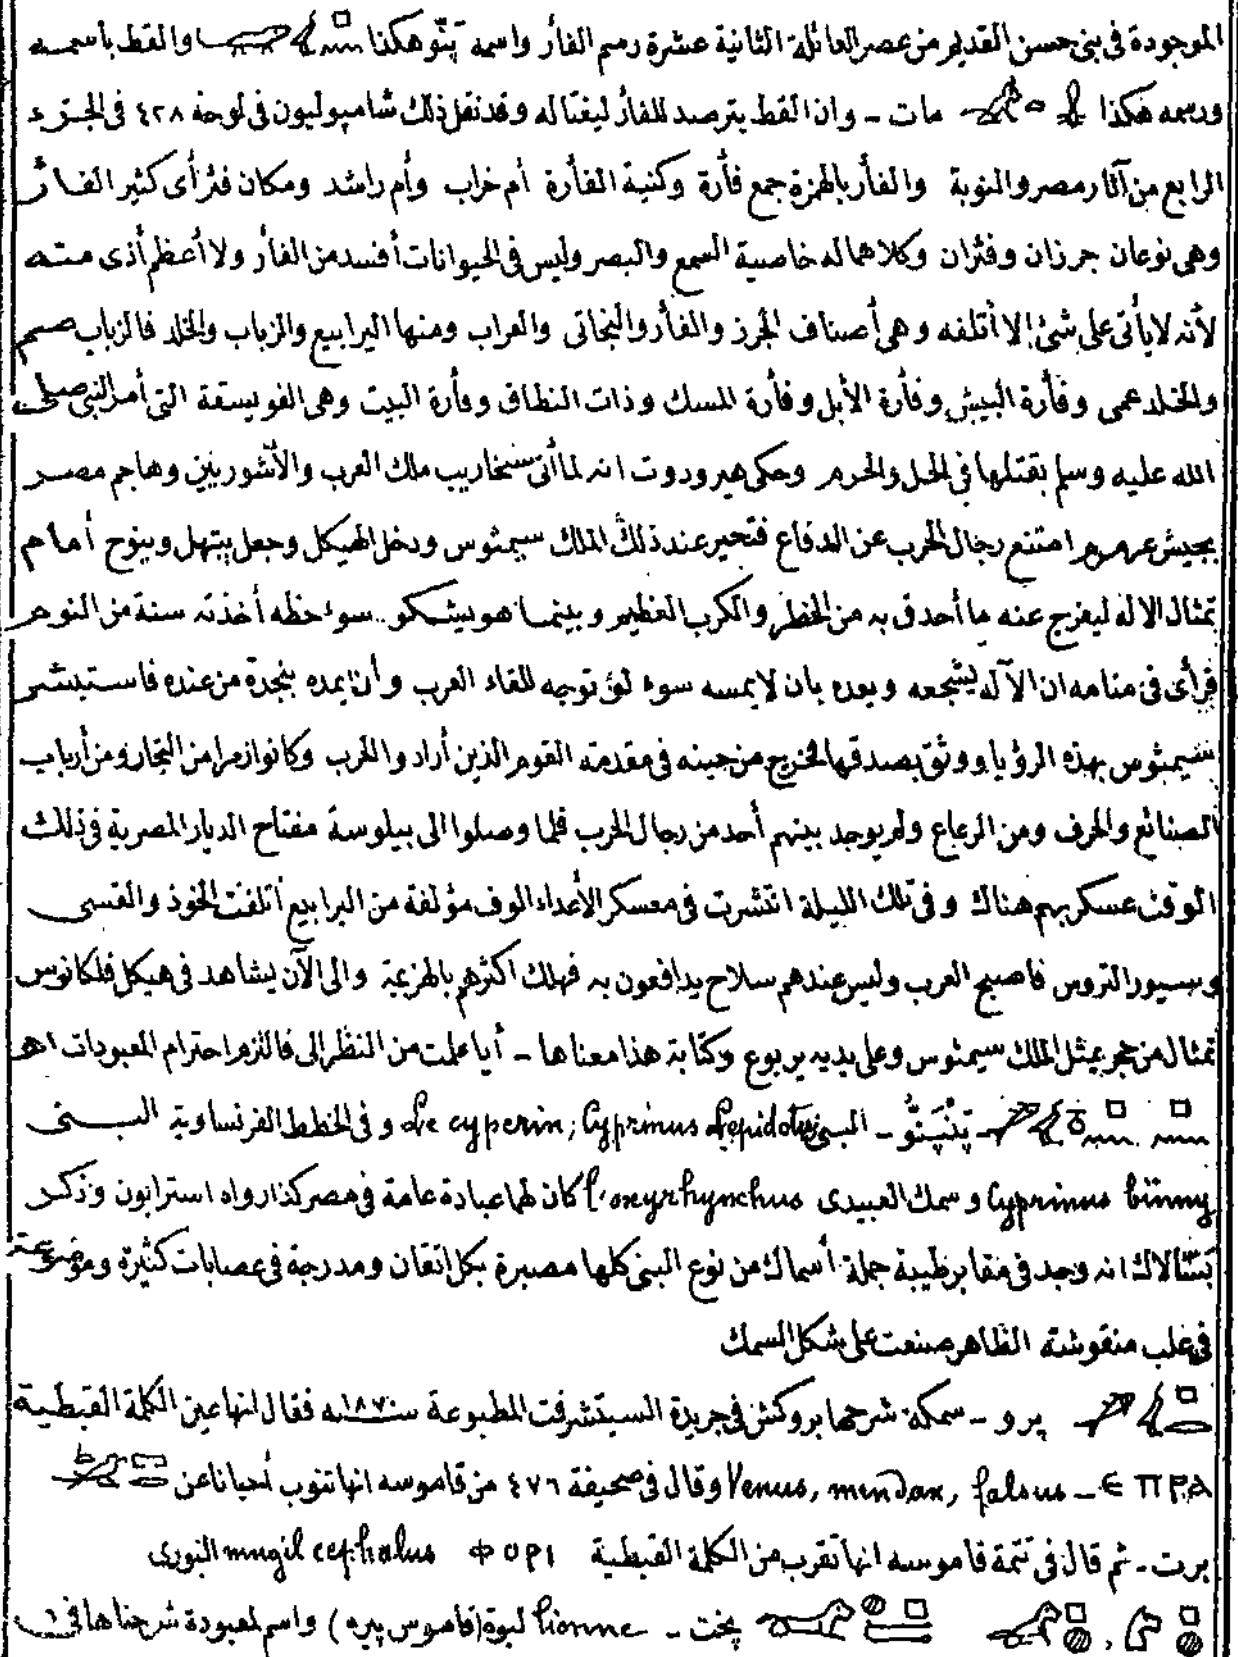 الموجودة فى بنى حسن القديم من عصر العائلة الثانية عشرة رسم الفأر واسمه پَنّو هكذا والقط باسمه
ورسمه هكذا مات - وان القط يترصد للفأر ليغتاله وقد نقل ذلك شامپوليون فى لوحة ٤٢٨ فى الجزء
الرابع من آثار مصر والنوبة والفأر بالهمزة جمع فأرة وكنية الفأرة أم خراب وأم راشد ومكان فئر أى كثير الفأر
وهى نوعان جرزان وفئران وكلاهما له خاصية السمع والبصر وليس فى الحيوانات أفسد من الفأر ولا أعظم أذى منه
لأنه لا يأتى على شئ إلا أتلفه وهى أصناف الجرز والفأر والبخاتى والعراب ومنها اليرابيع والزباب والخلد فالزباب صم
والخلد عمى وفأرة البيش وفأرة الأبل وفأرة المسك وذات النطاق وفأرة البيت وهى الفويسقة التى أمر النبى صلى
الله عليه وسلم بقتلها فى الحل والحرم وحكى هيرودوت انه لما أتى سنخاريب ملك العرب والأشوريين وهاجم مصر
بجيش عرمرم امتنع رجال الحرب عن الدفاع فتحير عند ذلك الملك سيمثوس ودخل الهيكل وجعل يبتهل وينوح أمام
تمثال الاله ليفرج عنه ما أحدق به من الخطر والكرب العظيم وبينما هو يشكو سوء حظه أخذته سنة من النوم
فرأى فى منامه ان الآله يشجعه ويعده بان لا يمسه سوء لو توجه للقاء العرب وأن يمده بنجدة من عنده فاستبشر
سيمثوس بهذه الرؤيا ووثق بصدقها فخرج من حينه فى مقدمة القوم الذين أرادوا الحرب وكانوا زمرا من التجار ومن أرباب
الصنائع والحرف ومن الرعاع ولم يوجد بينهم أحد من رجال الحرب فلما وصلوا الى بيلوسة مفتاح الديار المصرية فى ذلك
الوقت عسكر بهم هناك وفى تلك الليلة انتشرت فى معسكر الأعداء الوف مؤلفة من اليرابيع أتلفت الخوذ والقسى
وسيور التروس فاصبح العرب وليس عندهم سلاح يدافعون به فهلك اكثرهم بالهزيمة والى الآن يشاهد فى هيكل فلكانوس
تمثال من حجر يمثل الملك سيمثوس وعلى يديه يربوع وكتابة هذا معناها - أيا علمت من النظر إلى فالتزم احترام المعبودات اهـ
پَنْپَنُّو - البنى Le cyperin; Cyprinus Lepidotus وفى الخطط الفرنساوية البنى
Cyprinus binny وسمك العبيدى l'oxyrhynchus كان لها عبادة عامة فى مصر كذا رواه استرابون وذكر
بَسَّالاك انه وجد فى مقابر طيبة جملة أسماك من نوع البنى كلها مصبرة بكل اتقان ومدرجة فى عصابات كثيرة وموضوعة
فى علب منقوشة الظاهر صنعت على شكل السمك
پرو - سمكة شرحها بروكش فى جريدة السيتشرفت المطبوعة سنة فقال انها عين الكلمة القبطية
ⲉⲡⲣⲁ - Venus, mendax, falsus وقال فى صحيفة ٤٧٦ من قاموسه انها تنوب أحيانا عن
برت - ثم قال فى تتمة قاموسه انها تقرب من الكلمة القبطية ⲫⲟⲣⲓ mugil cephalus النورى
پخت - lionne لبوة (قاموس پيره) واسم لمعبودة شرحناها فى